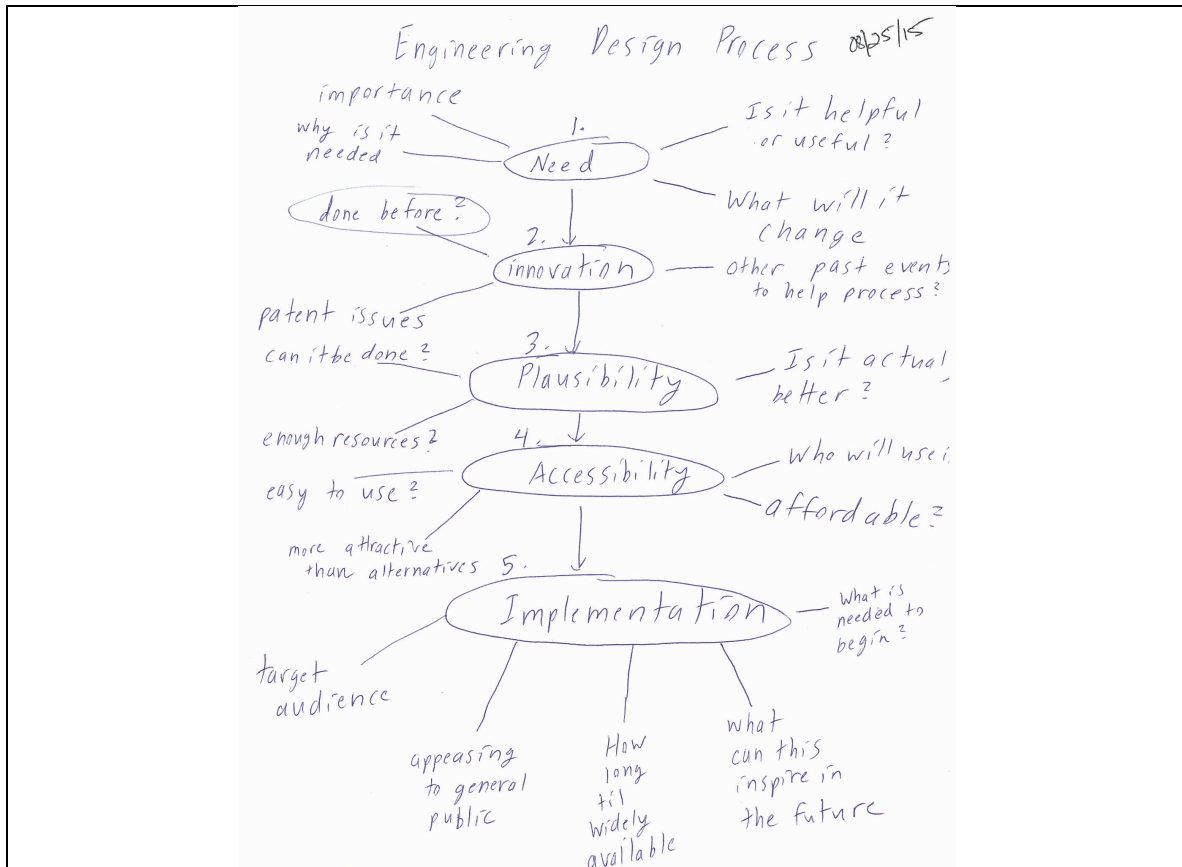 Engineering Design Process 08/25/15
importance
why is it
needed
1.
Need
Is it helpful
or useful?
What will it
change
done before?
2.
innovation
other past events
to help process?
patent issues
can it be done?
3.
Plausibility
Is it actual
better?
enough resources?
4.
Accessibility
Who will use i
easy to use?
affordable?
more attractive
than alternatives
5.
Implementation
What is
needed to
begin?
target
audience
appeasing
to general
public
How
long
til
widely
available
what
can this
inspire in
the future